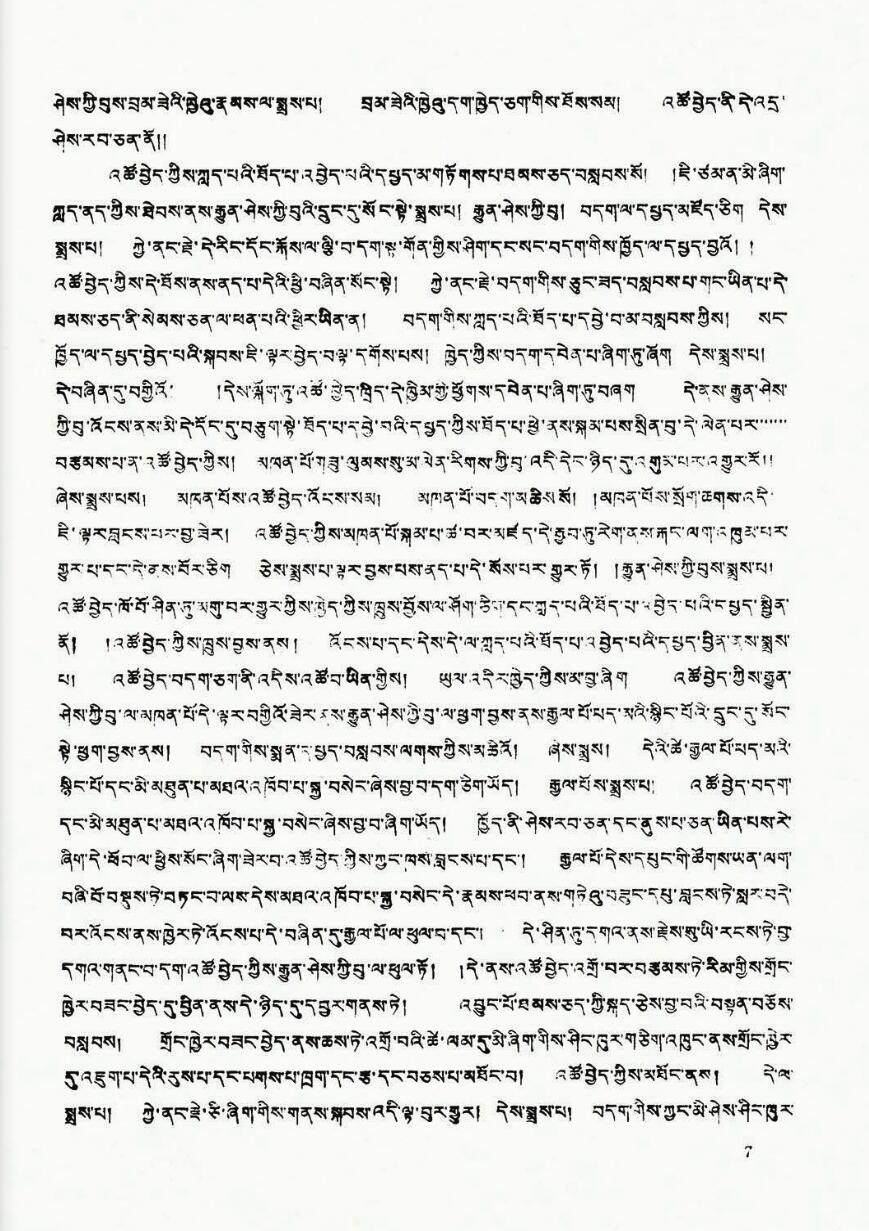 ཤེས་ཀྱི་བུས་བྲམ་ཟེའི་ཁྱེའུ་རྣམས་ལ་སྨྲས་པ། བྲམ་ཟེའི་ཁྱེའུ་དག་ཁྱེད་ཅག་གིས་ཐོས་སམ། འཚོ་བྱེད་ནི་དེ་འདྲ་
ཤེས་རབ་ཅན་ནོ།།
འཚོ་བྱེད་ཀྱིས་ཀླད་པའི་ཐོད་པ་འབྱེད་པའི་དཔྱད་མ་གཏོགས་པ་ཐམས་ཅད་བསླབས་སོ། །ཇི་ཙམ་ན་མི་ཞིག་
ཀླད་ནད་ཀྱིས་ཐེབས་ནས་རྒྱུན་ཤེས་ཀྱི་བུའི་དྲུང་དུ་སོང་སྟེ་སྨྲས་པ། རྒྱུན་ཤེས་ཀྱི་བུ། བདག་ལ་དཔྱད་མཛོད་ཅིག དེས་
སྨྲས་པ། ཀྱེ་ནང་རྗེ་དེ་རིང་དོང་རྐོས་ལ་ལྕི་བ་དག་སྟ་གོན་གྱིས་ཤིག་དང་སང་བདག་གིས་ཁྱོད་ལ་དཔྱད་བྱའོ། །
འཚོ་བྱེད་ཀྱིས་དེ་ཐོས་ནས་ནད་པ་དེའི་ཕྱི་བཞིན་སོང་སྟེ། ཀྱེ་ནང་རྗེ་བདག་གིས་ཅུང་ཟད་བསླབས་པ་གང་ཡིན་པ་དེ་
ཐམས་ཅད་ནི་སེམས་ཅན་ལ་ཕན་པའི་ཕྱིར་ཡིན་ན། བདག་གིས་ཀླད་པའི་ཐོད་པ་དབྱེ་བ་མ་བསླབས་ཀྱིས། སང་
ཁྱོད་ལ་དཔྱད་བྱེད་པའི་སྐབས་ཇི་ལྟར་བྱེད་བལྟ་དགོས་པས། ཁྱེད་ཀྱིས་བདག་དབེན་པ་ཞིག་ཏུ་ཞོག དེས་སྨྲས་པ།
དེ་བཞིན་དུ་བགྱིའོ་ །དེས་ལྐོག་ཏུ་འཚོ་བྱེད་ཁྲིད་དེ་ཁྱིམ་གྱི་ཕྱོགས་དབེན་པ་ཞིག་ཏུ་བཞག དེ་ནས་རྒྱུན་ཤེས་
ཀྱི་བུ་འོངས་ནས་མི་དེ་དོང་དུ་བཅུག་སྟེ་ཐོད་པ་དབྱེ་བའི་དཔྱད་ཀྱིས་ཐོད་པ་ཕྱེ་ནས་སྐམ་པས་སྲིན་བུ་དེ་ལེན་པར་
བརྩམས་པ་ན་འཚོ་བྱེད་ཀྱིས། མཁན་པོ་གཟུ་ལུམས་སུ་མ་ལེན་རིགས་ཀྱི་བུ་འདི་དེང་ཉིད་དུ་འགུམ་པར་འགྱུར་རོ།།
ཞེས་སྨྲས་པས། མཁན་པོས་འཚོ་བྱེད་འོངས་སམ། མཁན་པོ་བདག་མཆིས་སོ། །མཁན་པོས་སྲོག་ཆགས་འདི་
ཇི་ལྟར་བླངས་པར་བྱ་ཟེར། འཚོ་བྱེད་ཀྱིས་མཁན་པོ་སྐམ་པ་ཚ་བར་མཛད་དེ་རྒྱབ་ཏུ་རེག་ནས་རྐང་ལག་འཁུམ་པར་
གྱུར་པ་དང་དེ་ནས་བོར་ཅིག ཅེས་སྨྲས་པ་ལྟར་བྱས་པས་ནད་པ་དེ་སོས་པར་གྱུར་ཏོ། །རྒྱུན་ཤེས་ཀྱི་བུས་སྨྲས་པ།
འཚོ་བྱེད་ཁོ་བོ་ཤིན་ཏུ་མགུ་བར་གྱུར་གྱིས་ཁྱེད་ཀྱིས་ཁྲུས་གྱིས་ལ་ཤོག་ཅིག་དང་ཀླད་པའི་ཐོད་པ་འབྱེད་པའི་དཔྱད་སྦྱིན་
ནོ། །འཚོ་བྱེད་ཀྱིས་ཁྲུས་བྱས་ནས། འོངས་པ་དང་དེས་དེ་ལ་ཀླད་པའི་ཐོད་པ་འབྱེད་པའི་དཔྱད་བྱིན་ནས་སྨྲས་
པ། འཚོ་བྱེད་བདག་ཅག་ནི་འདིས་འཚོ་བ་ཡིན་གྱིས། ཡུལ་འདིར་ཁྱེད་ཀྱིས་མ་བྱ་ཞིག འཚོ་བྱེད་ཀྱིས་རྒྱུན་
ཤེས་ཀྱི་བུ་ལ་མཁན་པོ་དེ་ལྟར་བགྱིའོ་ཟེར་ནས་རྒྱུན་ཤེས་ཀྱི་བུ་ལ་ཕྱག་བྱས་ནས་རྒྱལ་པོ་པད་མའི་སྙིང་པོའི་དྲུང་དུ་སོང་
སྟེ་ཕྱག་བྱས་ནས། བདག་གིས་སྨན་དཔྱད་བསླབས་ལགས་ཀྱིས་མཆིའོ། ཞེས་སྨྲས། དེའི་ཚེ་རྒྱལ་པོ་པད་མའི་
སྙིང་པོ་དང་མི་མཐུན་པ་མཐའ་འཁོབ་པ་སྐྱ་བསེང་ཞེས་བྱ་བ་དག་ཅིག་ཡོད། རྒྱལ་པོས་སྨྲས་པ། འཚོ་བྱེད་བདག་
དང་མི་མཐུན་པ་མཐའ་འཁོབ་པ་སྐྱ་བསེང་ཞེས་བྱ་བ་ཞིག་ཡོད། ཁྱོད་ནི་ཤེས་རབ་ཅན་དང་ནུས་པ་ཅན་ཡིན་པས་རེ་
ཞིག་དེ་ཕོབ་ལ་ཕྱིས་སོང་ཞིག་ཟེར་བ་འཚོ་བྱེད་ཀྱིས་ཀྱང་ཁས་བླངས་པ་དང་། རྒྱལ་པོ་དེས་དཔུང་གི་ཚོགས་ཡན་ལག་
བཞི་བོ་བསྡུས་ཏེ་བཏང་བ་ལས་དེས་མཐའ་འཁོབ་པ་སྐྱ་བསེང་དེ་རྣམས་ཕབ་ནས་གཏེའུ་བཟུང་དཔྱ་བླངས་ཏེ་སླར་བདེ་
བར་འོངས་ནས་ཁྱེར་ཏེ་འོངས་པ་དེ་བཞིན་དུ་རྒྱལ་པོ་ལ་ཕུལ་བ་དང་། དེ་ཤིན་ཏུ་དགའ་ནས་རྗེས་སུ་ཡི་རངས་ཏེ་བྱ་
དགའ་གནང་བ་དག་འཚོ་བྱེད་ཀྱིས་རྒྱུན་ཤེས་ཀྱི་བུ་ལ་ཕུལ་ཏོ། །དེ་ནས་འཚོ་བྱེད་འགྲོ་བར་བརྩམས་ཏེ་རིམ་གྱིས་གྲོང་
ཁྱེར་བཟང་བྱེད་དུ་ཕྱིན་ནས་དེ་ཉིད་དུ་དབྱར་གནས་ཏེ། འབྱུང་པོ་ཐམས་ཅད་ཀྱི་སྐད་ཅེས་བྱ་བའི་བསྟན་བཅོས་
བསླབས། གྲོང་ཁྱེར་བཟང་བྱེད་ནས་ཆས་ཏེ་འགྲོ་བའི་ཚེ་ལམ་དུ་མི་ཞིག་གིས་ཤིང་ཁུར་གཅིག་འཁུང་ནས་གྲོང་ཁྱེར་
དུ་འཇུག་པ་དེའི་རུས་པ་དང་པགས་པ་ཁྲག་དང་རྩ་དང་བཅས་པ་མཐོང་བ། འཚོ་བྱེད་ཀྱིས་མཐོང་ནས། དེ་ལ་
སྨྲས་པ། ཀྱེ་ནང་རྗེ་ཅི་ཞིག་གིས་གནས་སྐབས་འདི་ལྟ་བུར་གྱུར། དེས་སྨྲས་པ། བདག་གིས་ཀྱང་མི་ཤེས་ཤིང་ཁུར་
7